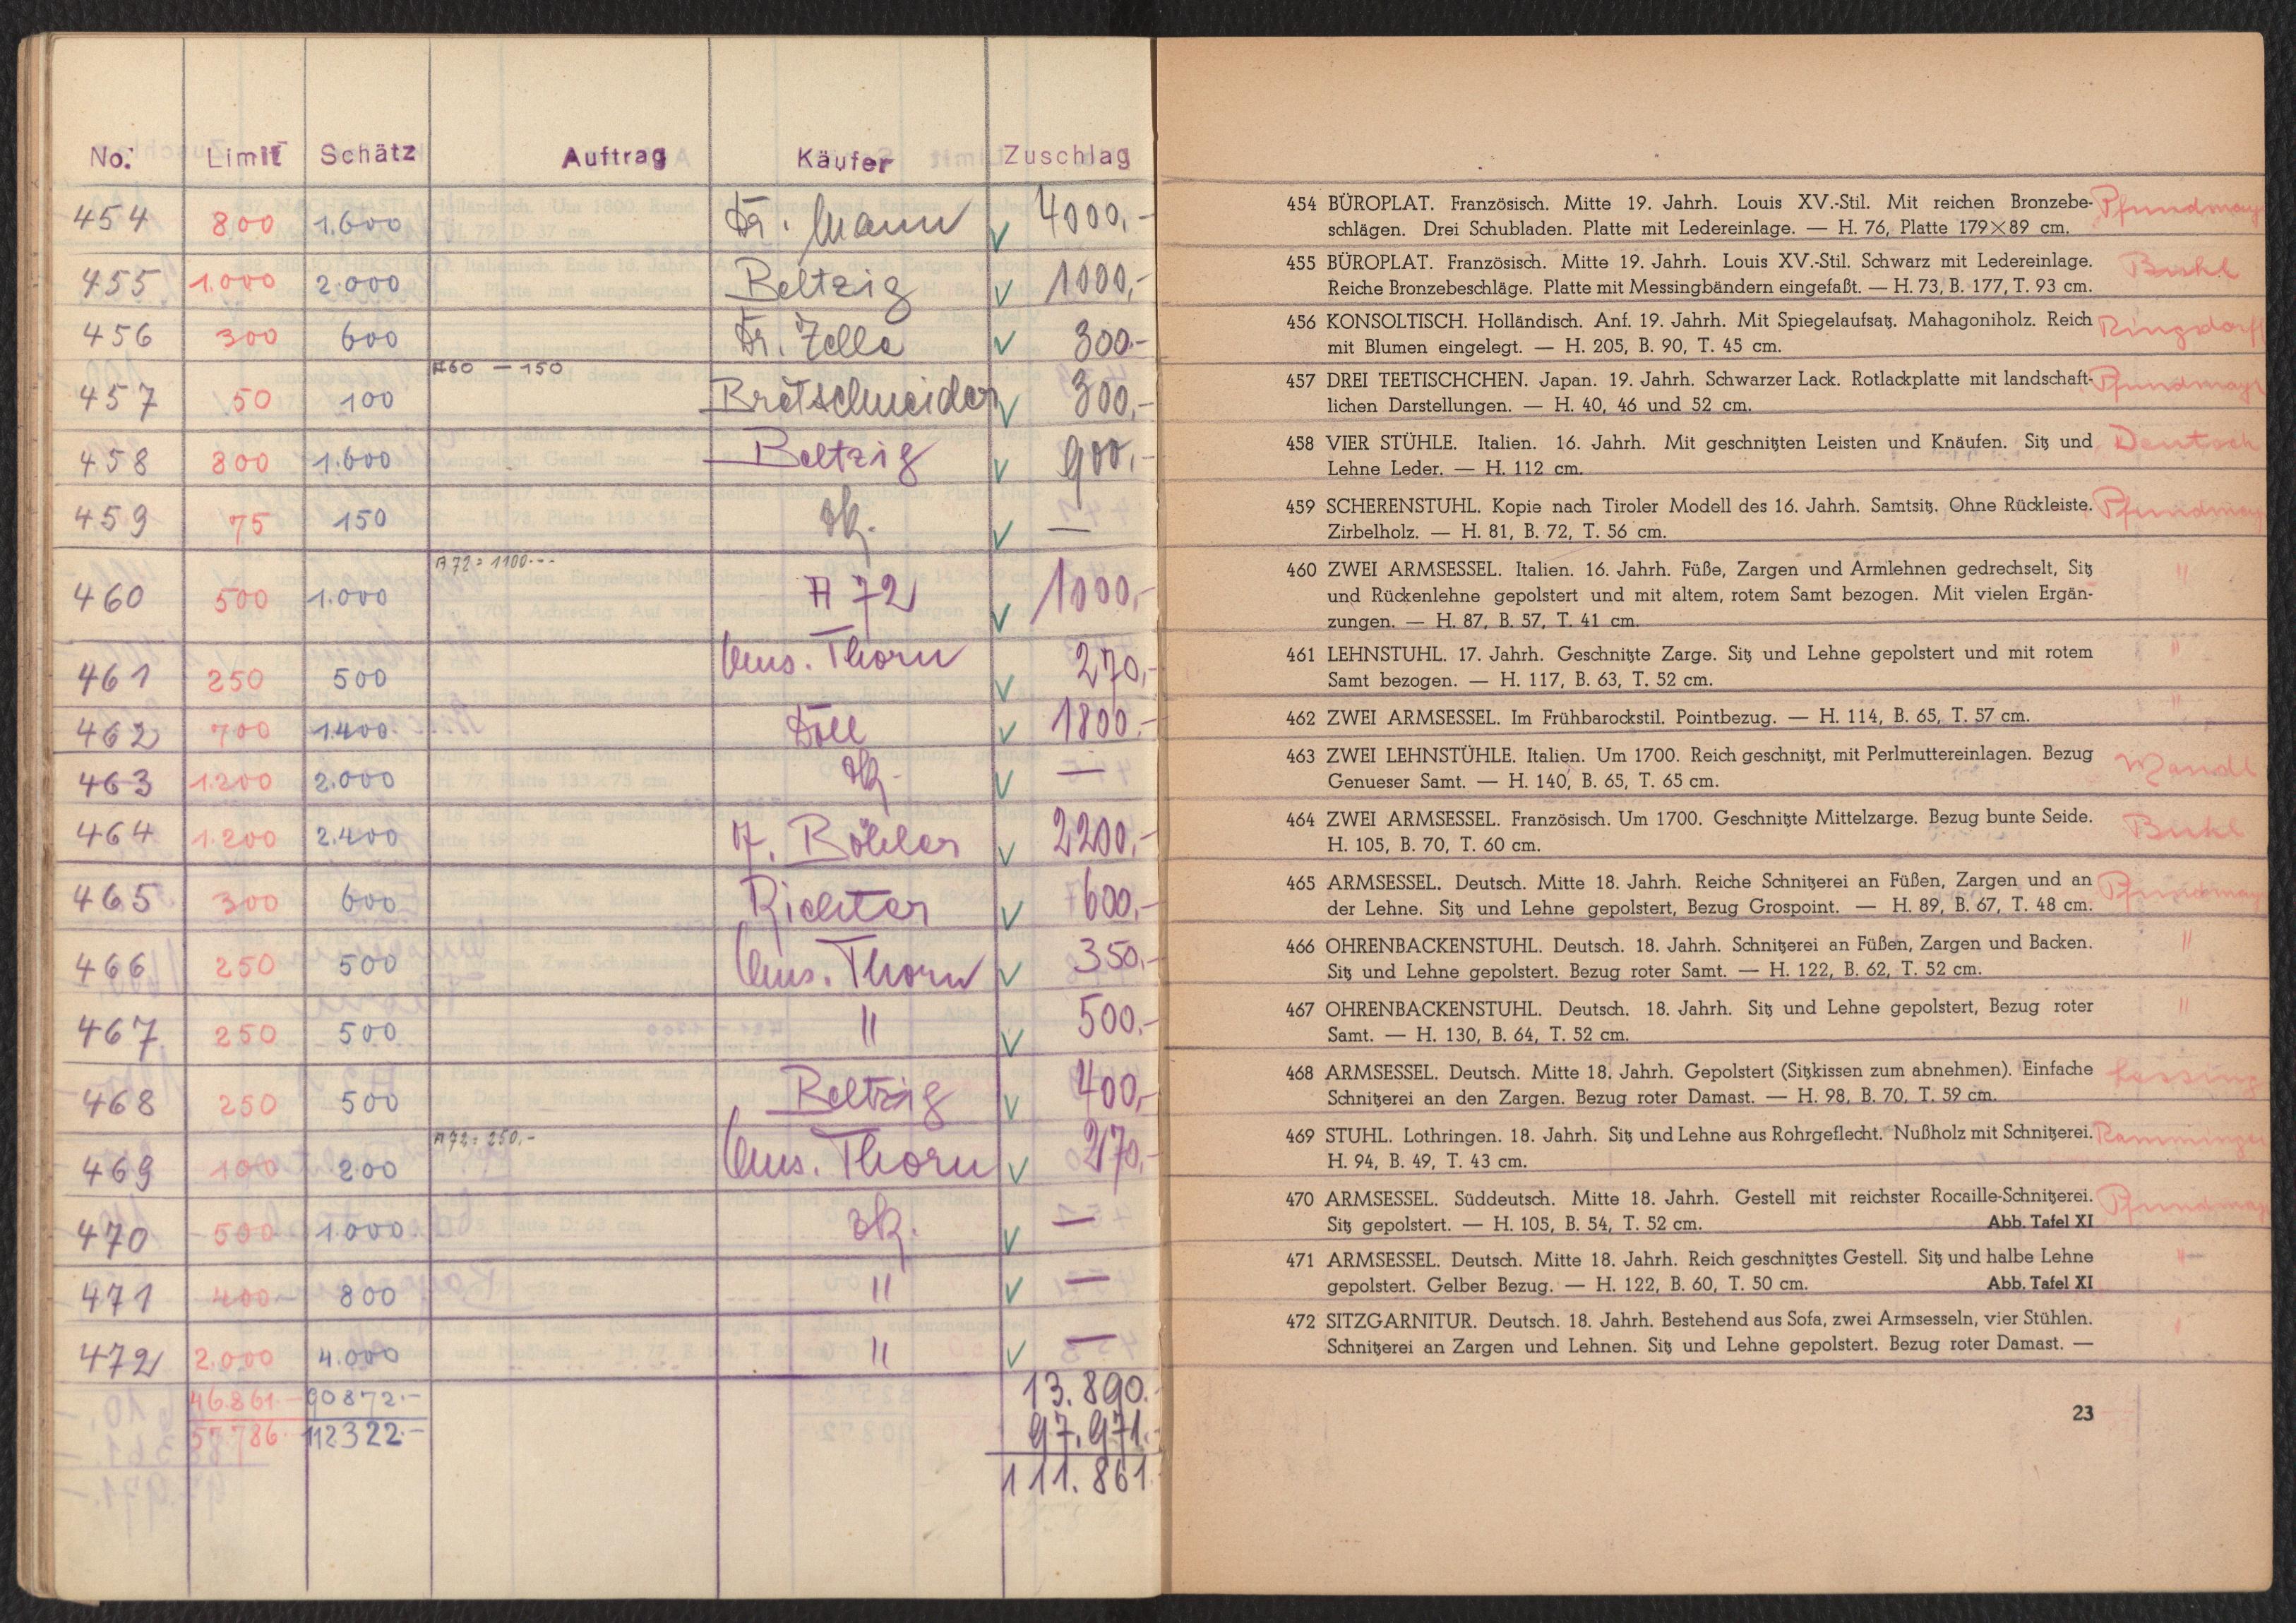 No. Limit Schätz Auftrag Käufer Zuschlag
454 800 1.600 Dr. Mann √ 4000,-
455 1.000 2.000 Beltzig √ 1000,-
456 300 600 √ 300.-
A60 - 150
457 50 100 Bretschneider √ 300,-
458 800 1.600 Beltzig √ 900,-
459 75 150 √ —
A 72 = 1100.--
460 500 1.000 A 72 √ 1000,-
461 250 500 Thorn √ 270,-
462 700 1.400. Döll √ 1800.-
463 1.200 2.000 √ —
464 1.200 2.400 Böhler √ 2200,-
465 300 600 Richter √ 600,-
466 250 500 Thorn √ 350,-
467 250 500 " √ 500,-
468 250 500 Beltzig √ 400,-
A 72 = 250.-
469 100 200 Thorn √ 270,-
470 500 1.000. √ —
471 400 800 " √ —
472 2.000 4.000 " √ —
46.861.- 90872.- 13.890.-
57.786 112322.- 97.971.-
111.861.
454 BÜROPLAT. Französisch. Mitte 19. Jahrh. Louis XV.-Stil. Mit reichen Bronzebe- Pfundmayr
schlägen. Drei Schubladen. Platte mit Ledereinlage. — H. 76, Platte 179×89 cm.
455 BÜROPLAT. Französisch. Mitte 19. Jahrh. Louis XV.-Stil. Schwarz mit Ledereinlage. Buhl
Reiche Bronzebeschläge. Platte mit Messingbändern eingefaßt. — H. 73, B. 177, T. 93 cm.
456 KONSOLTISCH. Holländisch. Anf. 19. Jahrh. Mit Spiegelaufsatz. Mahagoniholz. Reich Ringsdorff
mit Blumen eingelegt. — H. 205, B. 90, T. 45 cm.
457 DREI TEETISCHCHEN. Japan. 19. Jahrh. Schwarzer Lack. Rotlackplatte mit landschaft- Pfundmayr
lichen Darstellungen. — H. 40, 46 und 52 cm.
458 VIER STÜHLE. Italien. 16. Jahrh. Mit geschnitzten Leisten und Knäufen. Sitz und Deutsch
Lehne Leder. — H. 112 cm.
459 SCHERENSTUHL. Kopie nach Tiroler Modell des 16. Jahrh. Samtsitz. Ohne Rückleiste. Pfundmayr
Zirbelholz. — H. 81, B. 72, T. 56 cm.
460 ZWEI ARMSESSEL. Italien. 16. Jahrh. Füße, Zargen und Armlehnen gedrechselt, Sitz "
und Rückenlehne gepolstert und mit altem, rotem Samt bezogen. Mit vielen Ergän-
zungen. — H. 87, B. 57, T. 41 cm.
461 LEHNSTUHL. 17. Jahrh. Geschnitzte Zarge. Sitz und Lehne gepolstert und mit rotem "
Samt bezogen. — H. 117, B. 63, T. 52 cm.
462 ZWEI ARMSESSEL. Im Frühbarockstil. Pointbezug. — H. 114, B. 65, T. 57 cm. "
463 ZWEI LEHNSTÜHLE. Italien. Um 1700. Reich geschnitzt, mit Perlmuttereinlagen. Bezug Mandl
Genueser Samt. — H. 140, B. 65, T. 65 cm.
464 ZWEI ARMSESSEL. Französisch. Um 1700. Geschnitzte Mittelzarge. Bezug bunte Seide. Buhl
H. 105, B. 70, T. 60 cm.
465 ARMSESSEL. Deutsch. Mitte 18. Jahrh. Reiche Schnitzerei an Füßen, Zargen und an Pfundmayr
der Lehne. Sitz und Lehne gepolstert, Bezug Grospoint. — H. 89, B. 67, T. 48 cm.
466 OHRENBACKENSTUHL. Deutsch. 18. Jahrh. Schnitzerei an Füßen, Zargen und Backen. "
Sitz und Lehne gepolstert. Bezug roter Samt. — H. 122, B. 62, T. 52 cm.
467 OHRENBACKENSTUHL. Deutsch. 18. Jahrh. Sitz und Lehne gepolstert, Bezug roter "
Samt. — H. 130, B. 64, T. 52 cm.
468 ARMSESSEL. Deutsch. Mitte 18. Jahrh. Gepolstert (Sitzkissen zum abnehmen). Einfache Lessing
Schnitzerei an den Zargen. Bezug roter Damast. — H. 98, B. 70, T. 59 cm.
469 STUHL. Lothringen. 18. Jahrh. Sitz und Lehne aus Rohrgeflecht. Nußholz mit Schnitzerei. Ramminger
H. 94, B. 49, T. 43 cm.
470 ARMSESSEL. Süddeutsch. Mitte 18. Jahrh. Gestell mit reichster Rocaille-Schnitzerei. Pfundmayr
Sitz gepolstert. — H. 105, B. 54, T. 52 cm. Abb. Tafel XI
471 ARMSESSEL. Deutsch. Mitte 18. Jahrh. Reich geschnitztes Gestell. Sitz und halbe Lehne "
gepolstert. Gelber Bezug. — H. 122, B. 60, T. 50 cm. Abb. Tafel XI
472 SITZGARNITUR. Deutsch. 18. Jahrh. Bestehend aus Sofa, zwei Armsesseln, vier Stühlen. "
Schnitzerei an Zargen und Lehnen. Sitz und Lehne gepolstert. Bezug roter Damast. —
23